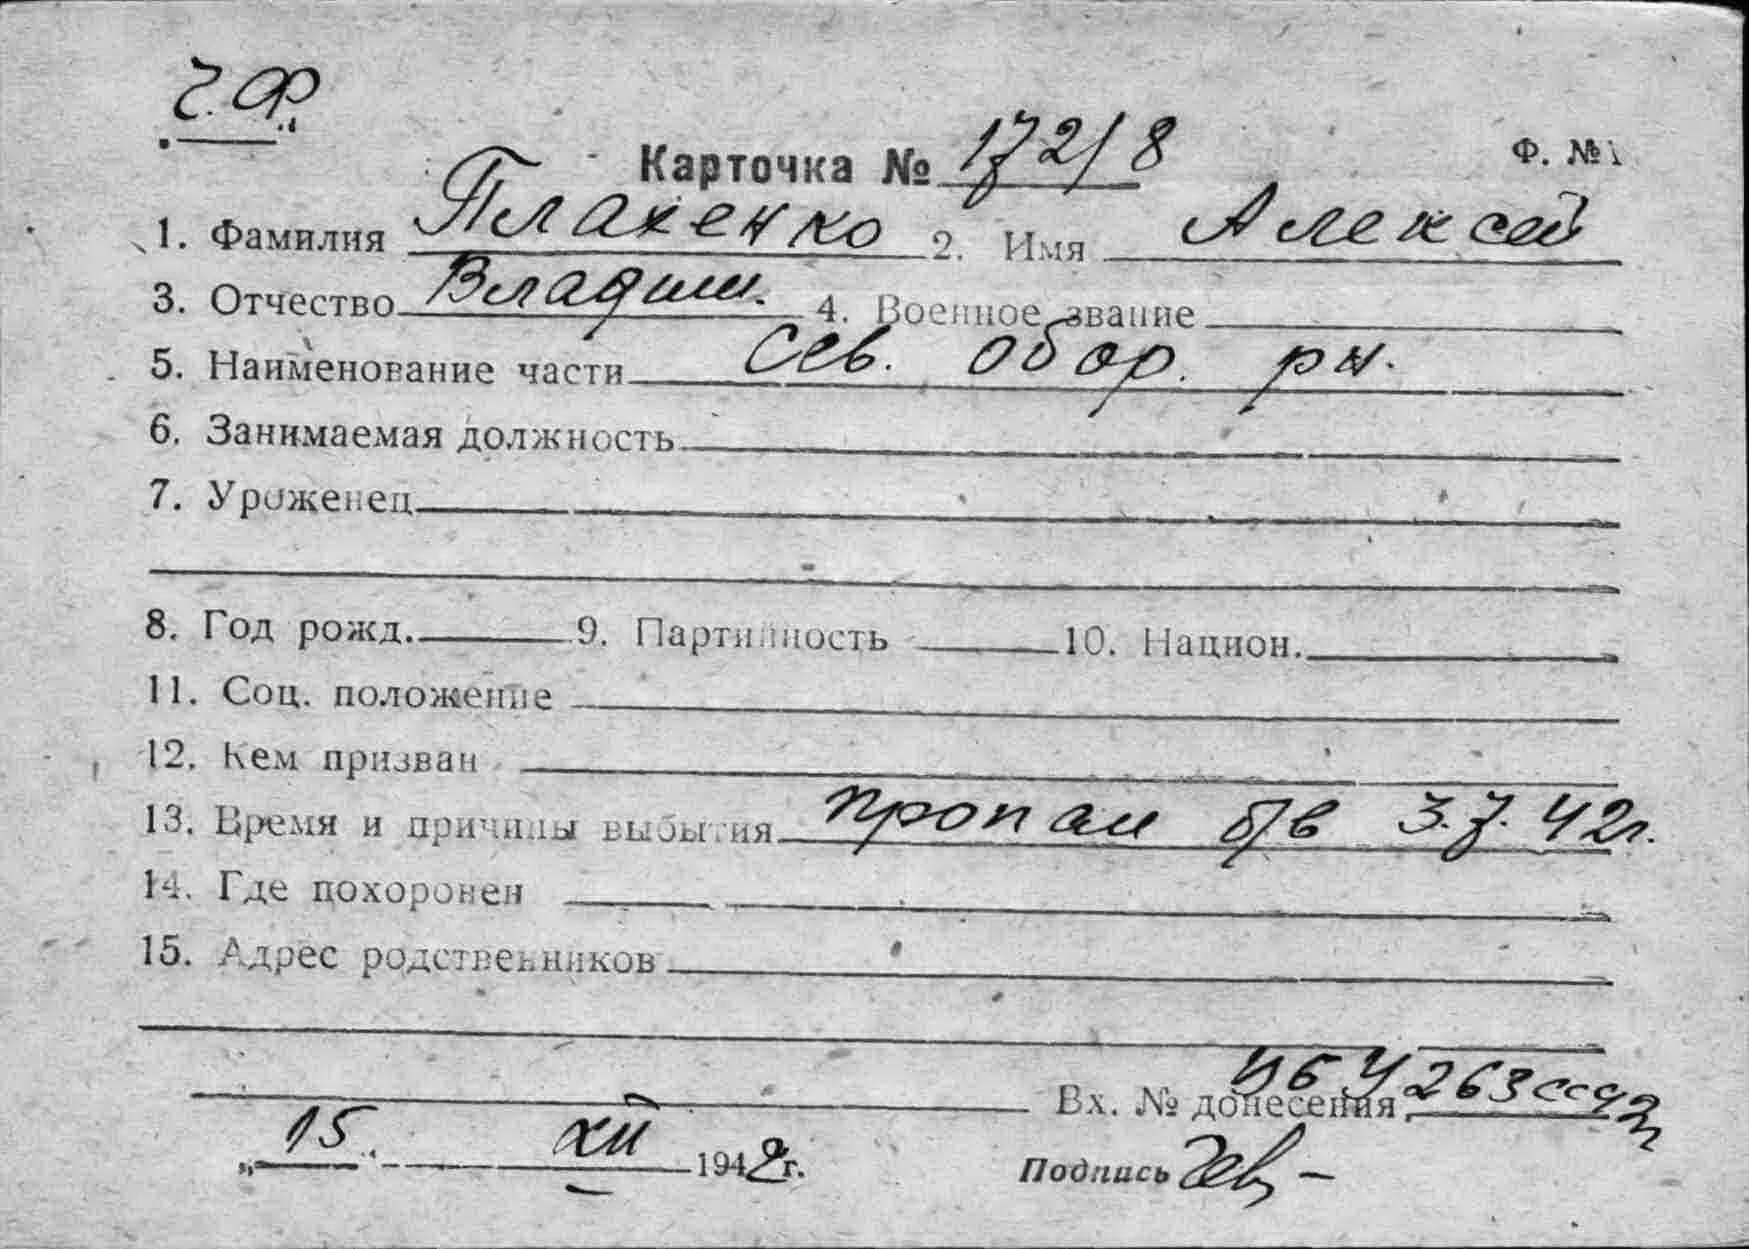 Ч.Ф.
Карточка № 172/8
Ф. №1
1. Фамилия Плахенко 2. Имя Алексей
3. Отчество Владим. 4. Военное звание
5. Наименование части Сев. обор. рн.
6. Занимаемая должность
7. Уроженец
8. Год рожд. 9. Партийность 10. Национ.
11. Соц. положение
12. Кем призван
13. Время и причины выбытия пропал б/в 3.7.42г.
14. Где похоронен
15. Адрес родственников
Вх. № донесения 263сс
„15" XII 1942г.
Подпись